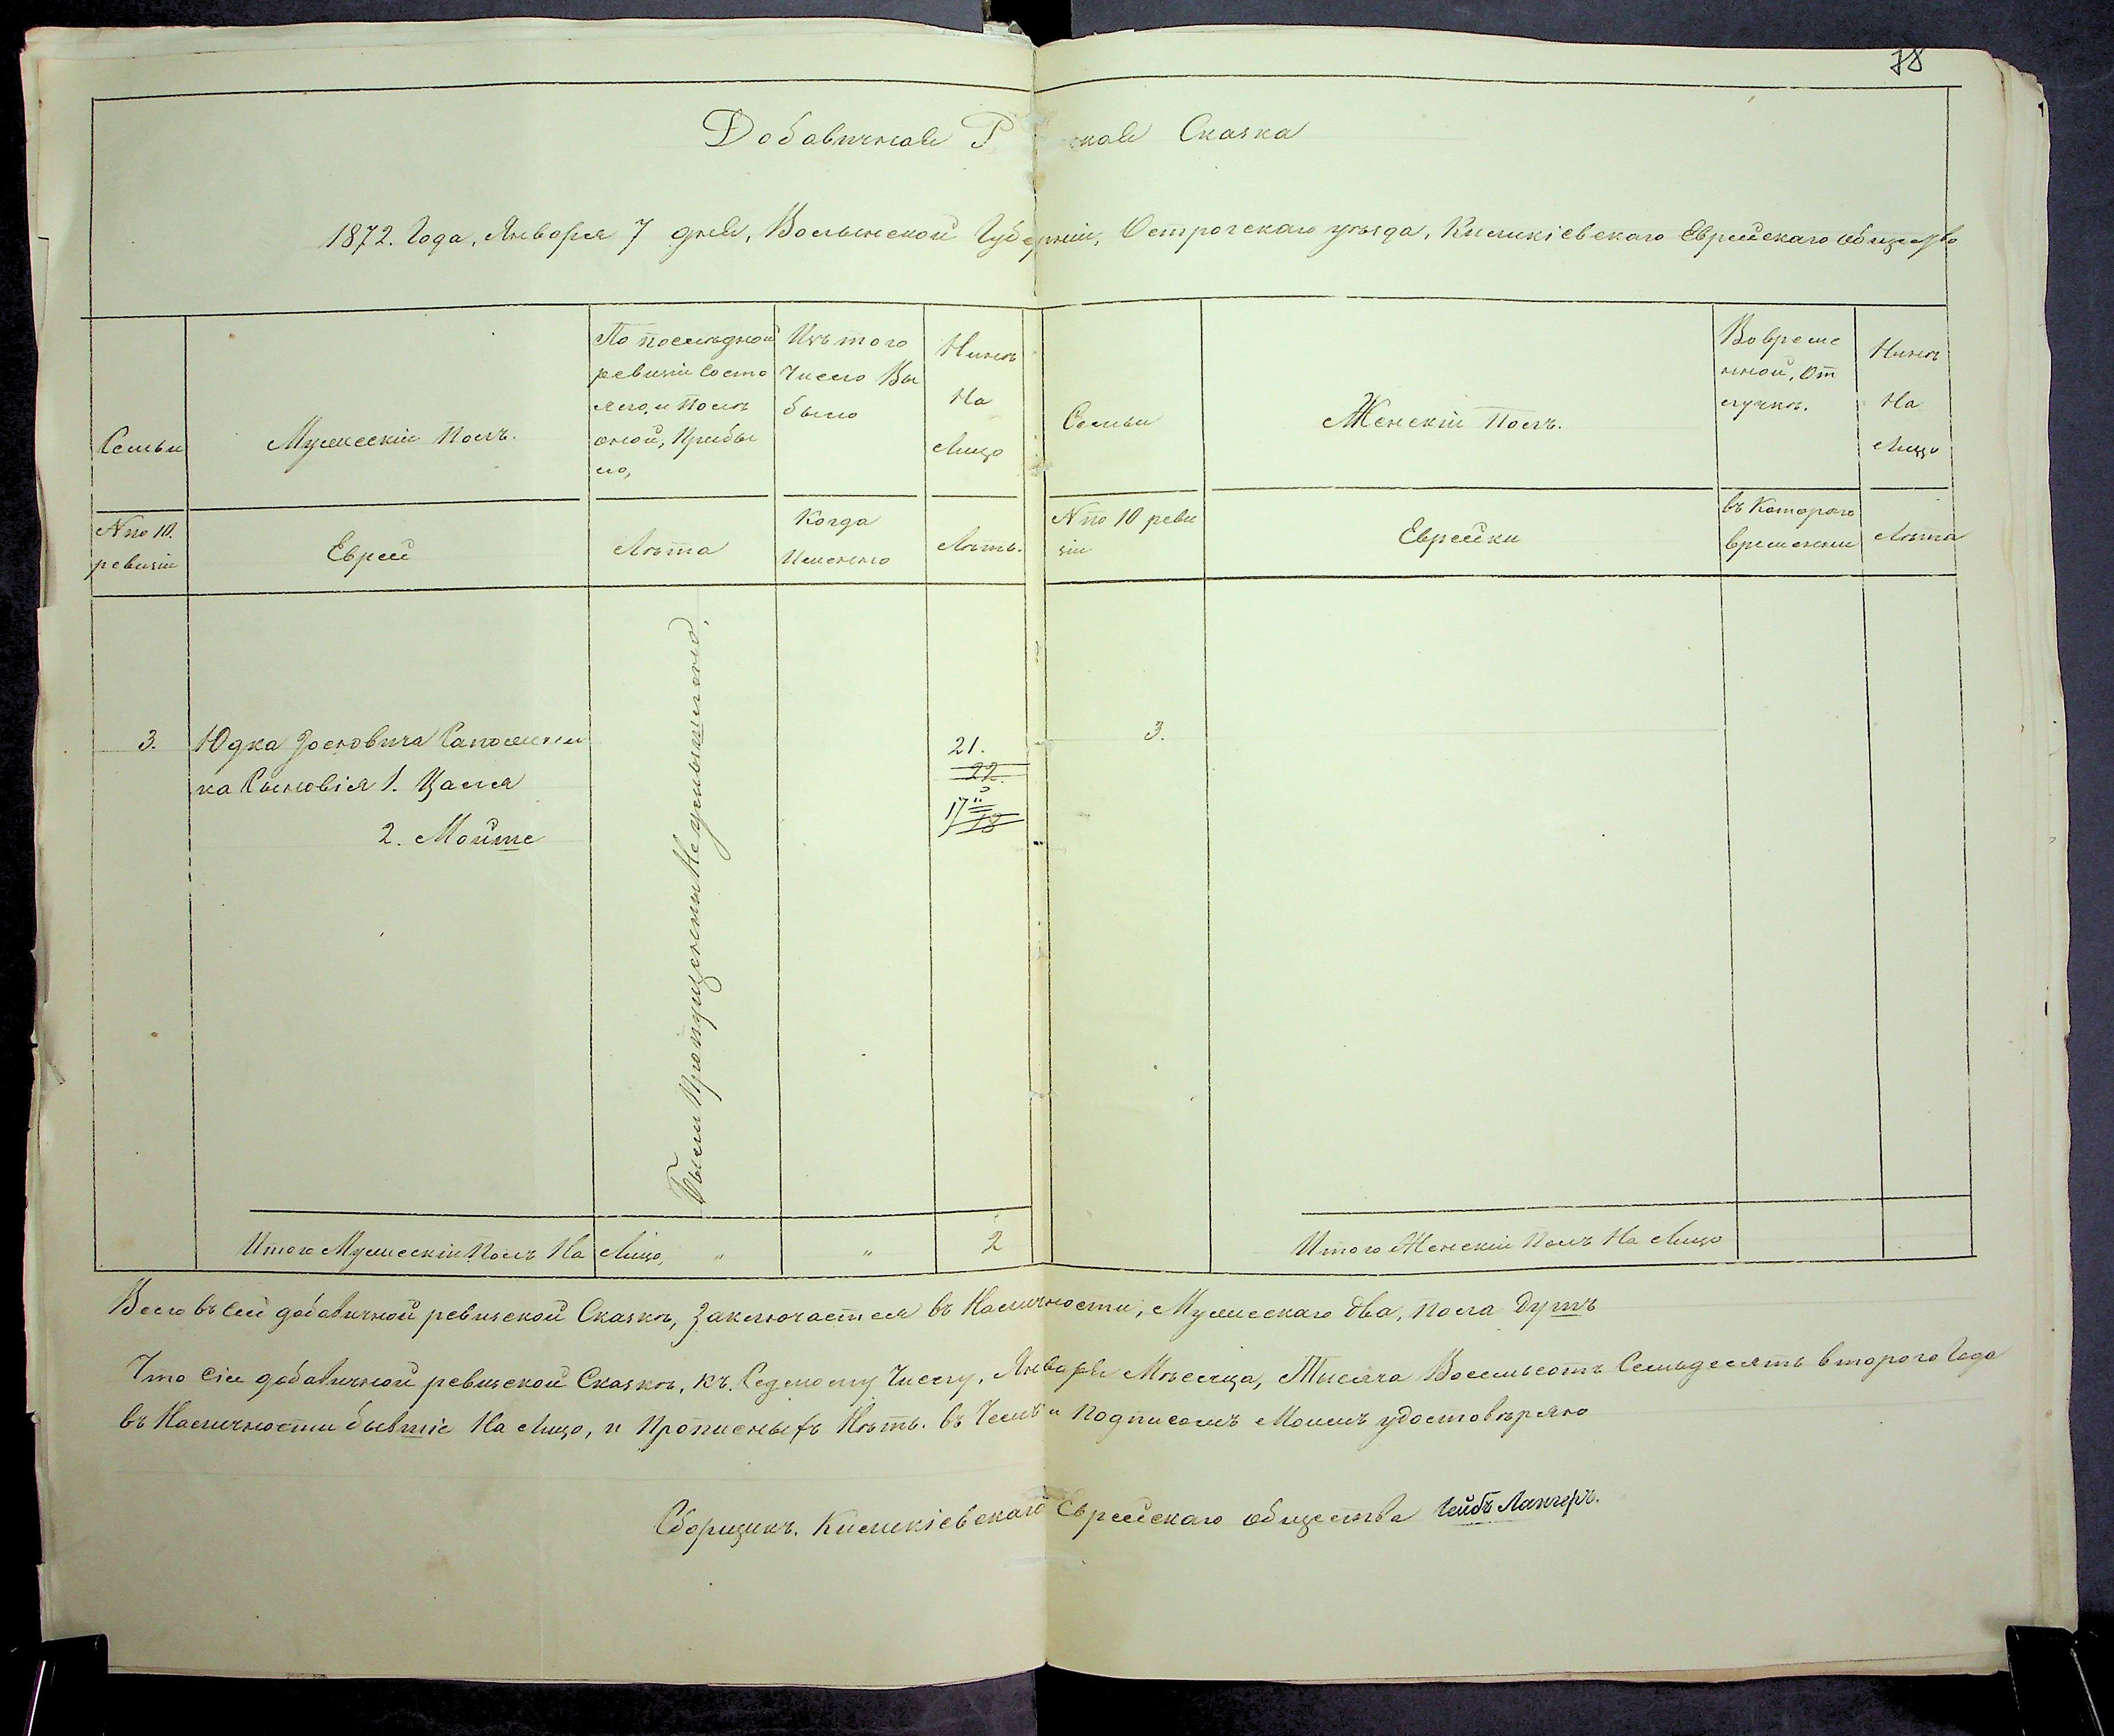 78
Добавичная Р ская Сказка
1872. Года, Января 7 дня, Волынской Губерніи, Острогскаго уѣзда, Киликіевскаго Еврейскаго общество
Семьи
Мужескій Полъ.
По послѣдной
ревизіи Состо
яло, и Послѣ
оной, Прибы
ло,
Изъ того
Число Вы
было
Нинѣ
На
Лицо
Семьи
Женскій Полъ.
Во време
нной, От
лучкѣ.
Нинѣ
На
Лицо
N по 10.
ревизіи
Евреи
Лѣта
Когда
Именно
Лѣтъ.
N по 10 реви
зіи
Еврейки
въ Которого
времении
Лѣта
3.
Юдка Зосновича Сапожни
ка Сыновія 1. Цаля
2. Мойше
Были Пропущенени Неумышленно,
21.
22.
17
18
3.
Итого Мужескій Полъ На Лицо, " " 2
Итого Женскій Полъ На Лицо
Всего въ сей добавичной ревизской Сказкѣ, Заключается въ Наличности, Мужескаго два, пола Душъ
Что Сіи добавичной ревизской Сказкѣ, къ Седмому Числу, Января Мѣсяца, Тысяча Восемьсотъ Семьдесятъ второго Года
въ Наличности бывшіе На Лицо, и Прописныхъ Нѣтъ. въ Чемъ и Подписомъ Моимъ удостовѣряю
Сборщикъ. Киликіевскаго Еврейскаго общества Лейбъ Лангеръ.